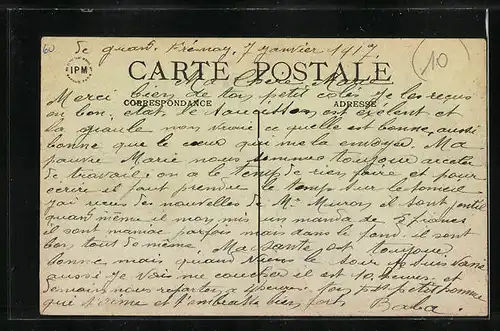 60
IPM
10
Le quart. Frénoy, 7 janvier 1917
CARTE POSTALE
Ma Chère
CORRESPONDANCE
ADRESSE
Merci bien de ton petit colis je les reçus
en bon état, le saucisson est exélent et
la gnaule mon vieux ce quelle est bonne, aussi
bonne que le cœur qui me la envoyée. Ma
pauvre Marie nous sommes toujour
de travail; on a le temps de rien faire et pour
ecrire il faut prendre le temps sur le someil
jai reçus des nouvelles de Mr Muron il sont gentil
quand même il mon mis un manda de 5 francs
il sont maniac parfois mais dans le fond il sont
bon tout de même. Ma santé est toujour
bonne mais quand vien le soir je suis
aussi je vais me coucher il est 10 heures et
demain nous repartons a 4 heures. Ton petit homme
qui t'aime et t'embrasse bien fort. Baba.